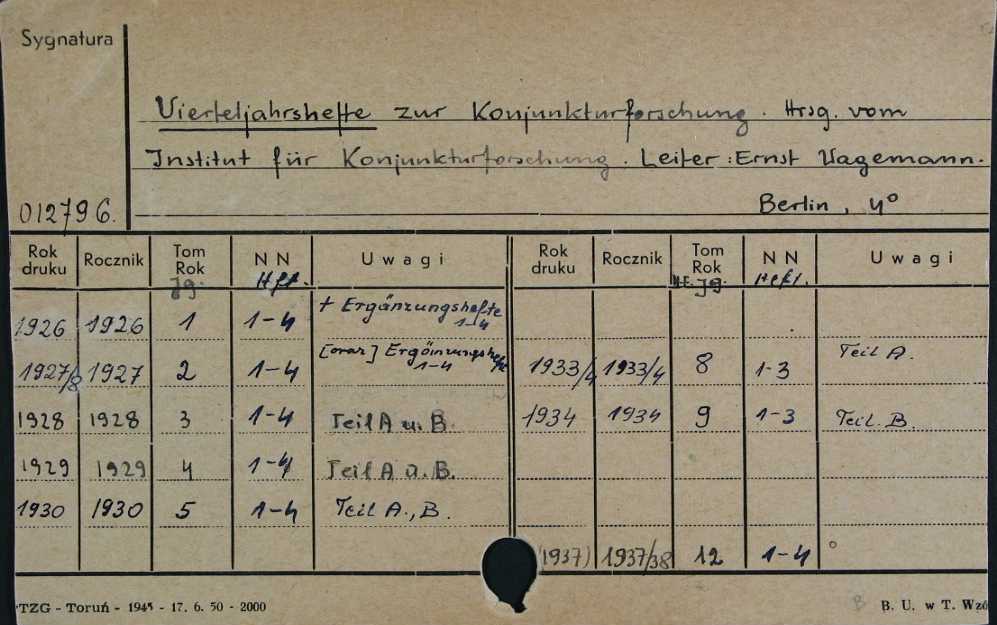 Sygnatura
Vierteljahrshefte zur Konjunkturforschung. Hrsg. vom
Institut für Konjunkturforschung. Leiter: Ernst Wagemann.
012796.
Berlin, 4°
Rok druku Rocznik Tom Rok Jg. N N Hft. U w a g i Rok druku Rocznik Tom Rok N.F. Jg. N N Heft. U w a g i
1926 1926 1 1-4 + Ergänzungshefte 1-4
1927/8 1927 2 1-4 [oraz] Ergänzungshefte 1-4 1933/4 1933/4 8 1-3 Teil A.
1928 1928 3 1-4 Teil A u. B. 1934 1934 9 1-3 Teil. B.
1929 1929 4 1-4 Teil A u. B.
1930 1930 5 1-4 Teil A., B.
(1937) 1937/38 12 1-4 °
PTZG - Toruń - 1945 - 17. 6. 50 - 2000
B. U. w T. Wzó